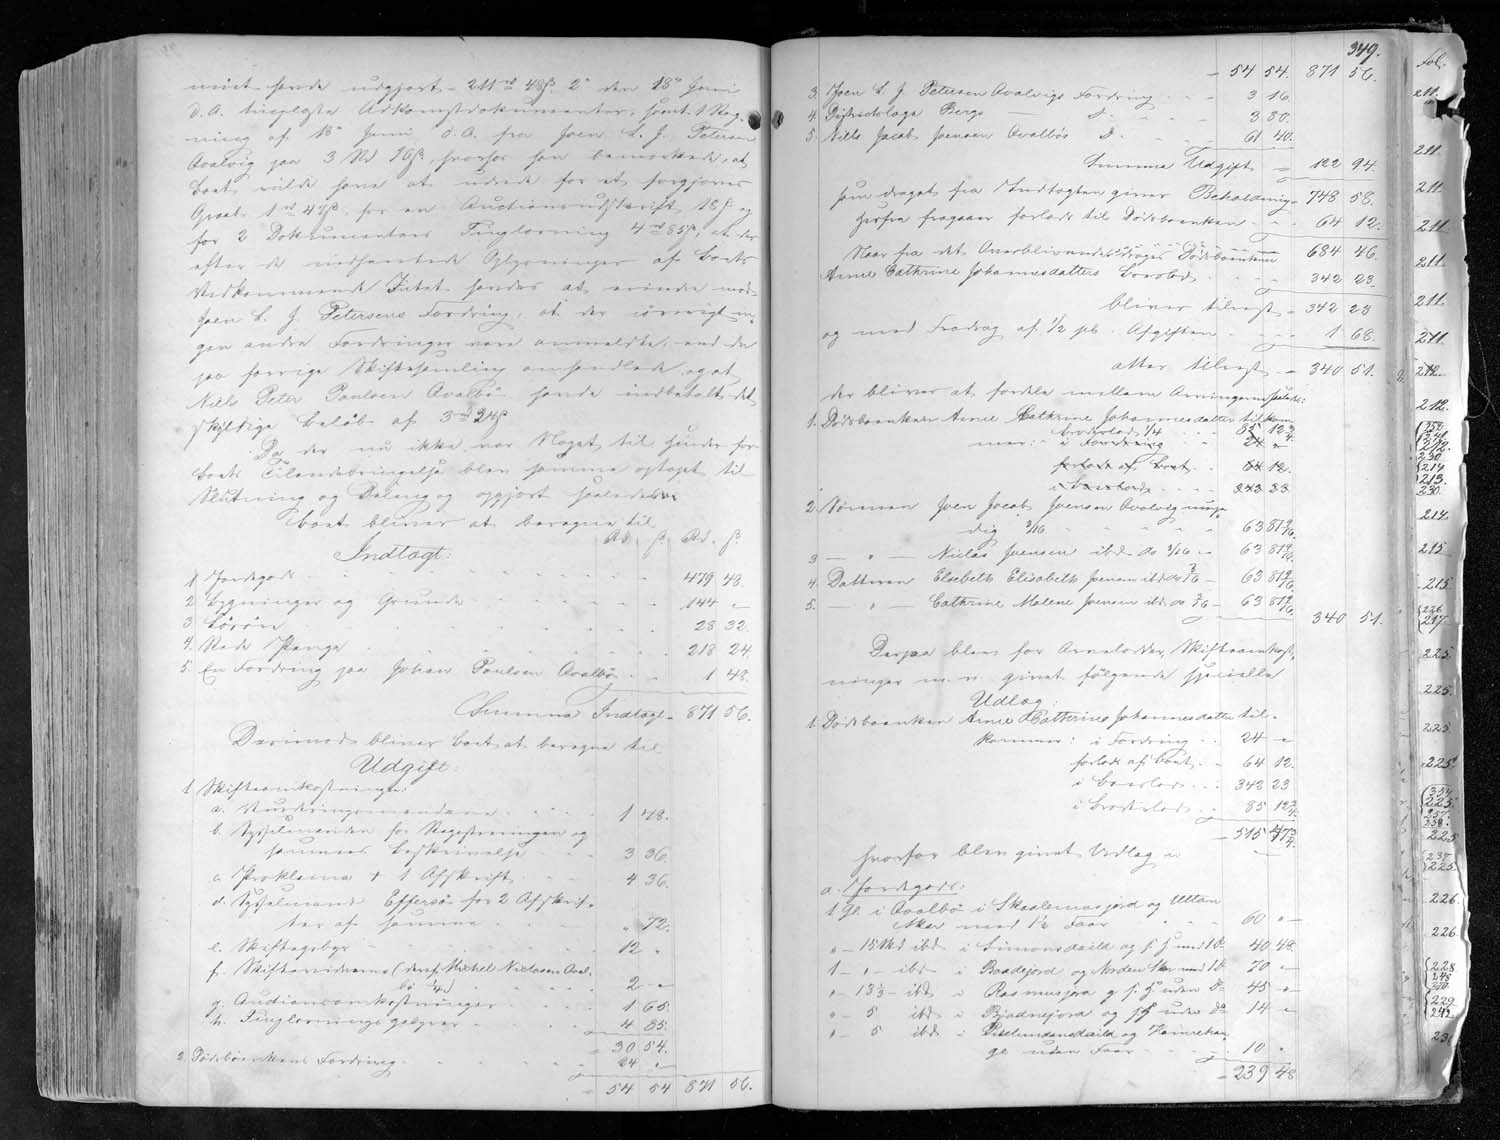 mist havde udgjort - 211 rd 48 ß. 2° den 18de Juni
d. A. tinglæste Adkomstdokumenter, samt 1 Reg-
ning af 18de Juni d. A. fra Joen L. J. Petersen
Qvalvig paa 3 Rd 16 ß, hvorfor han bemærkede, at
Boet vilde have at udrede for et forgjæves
1 rd 47 ß. for en Auctionsudskrift 18 ß og
for 2 Dokumenters Tinglæsning 4 rd 85 ß, at der
efter de indhentede Oplysninger af Boets
Vedkommende Intet havdes at erindre mod
Joen L. J. Petersens Fordring, at der iøvrigt in-
gen andre Fordringer vare anmeldte, end de
paa forrige Skiftesamling omhandlede, og at
Niels Peter Poulsen Qvalbø havde indbetalt det
skyldige Beløb af 3 rd 24 ß
Da der nu ikke var Noget til Hinder for
Boets Tilendebringelse blev samme optaget til
Slutning og Deling og opgjort saaledes:
Boet bliver at beregne til
Rd. ß. Rd. ß.
Indtægt:
1 Jordegods 479 48.
2 Bygninger og Grunde 144 "
3 Løsøre 28 32.
4. Rede Penge 218 24.
5. En Fordring paa Johan Poulsen Qvalbø 1 48.
Summa Indtægt = 871 56.
Derimod bliver Boet at beregne til
Udgift:
1 Skifteomkostninger:
a. Vurderingsmændene 1 48.
b. Sysselmanden for Registreringen og
sammes Beskrivelse 3 36.
c. Proklama + 1 Afskrift 4 36.
d. Sysselmand Effersøe for 2 Afskrif-
ter af samme " 72.
e. Skiftegebyr 12 "
f. Skiftevidnerne (deraf Michel Niclasen Qval-
bø 1/4) 2 "
g. Auctionsomkostninger 1 65.
h. Tinglæsnings gebyrer 4 85.
= 30 54.
2 Dødsboenkens Fordring 24 "
= 54 54 871 56.
349.
= 54 54. 871 56.
3. Joen L. J. Petersen Qvalvigs Fordring 3 16.
4. Districtslæge Bergs — D° 3 80.
5. Niels Jacob Joensen Qvalbøs D° 61 40.
Summa Udgift = 122 94.
som draget fra Indtægten giver Beholdning = 748 58.
Herfra fragaaer forlods til Dødsboenken 64 12.
Naar fra det Overblivende drages Dødsboenkens 684 46.
Anne Cathrine Johannesdatters Boeslod 342 23.
bliver tilrest = 342 23
og med Fradrag af 1/2 pCt. Afgiften 1 68.
atter tilrest = 340 51.
der bliver at fordele mellem Arvingerne saaledes:
1. Dødsboenken Anne Cathrine Johannesdatter tilkom
broderlod 1/4 85 12 3/4.
mer: i Fordring 24 "
forlods af Boet 64 12.
i Boeslod 342 23
2. Sønnen Joen Jacob Joensen Qvalvig myn-
dig 3/16 63 81 9/16.
3 — " — Niclas Joensen ibd do 3/16 - 63 81 9/16.
4. Datteren Elsebeth Elisabeth Joensen ibd do 3/16 - 63 81 9/16.
5. — " — Cathrine Malene Joensen ibd do 3/16 - 63 81 9/16
340 51.
Derpaa blev for Arvelodder, Skifteomkost-
ninger m. v. givet følgende specielle
Udlæg:
1. Dødsboenken Anne Cathrine Johannesdatter til-
kommer: i Fordring 24 "
forlods af Boet 64 12.
i Boeslod 342 23
i Broderlod 85 12 3/4.
= 515 47 3/4.
hvorfor blev givet Udlæg i
a. Jordegods:
1 Gl. i Qvalbø i Skaalemosjord og Uttan
Aker med 1 1/2 Faar 60 "
" - 15 Skd ibd i Simonsdaild og s. H. med 1 D° 40 48.
1 - " - ibd i Baadejord og Norden Aker med 1 D° 70 "
" - 13 1/3 - ibd i Rasmusjord og s. H. uden D° 45 "
" - 5 ibd i Bjadnejord og s. H. uden D° 14 "
" - 5 ibd i
ge uden Faar 10 "
= 239 48
Fol.
211.
211
211.
211.
211.
211.
211.
212.
212.
230
214
213.
230.
214
215
215
226
217
225.
225.
225
225.
334
225.
225
237
225.
226.
226
228
229
242.